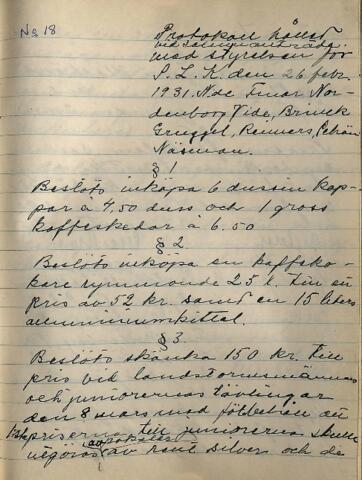 No 18
Protokoll hållet
vid sammanträde
med styrelsen för
S. L. K. den 26 febr.
1931. N.de Einar Nor-
denborg Vide, Brinck
Gruggel, Renners,
Näsman.
§ 1
Beslöts inköpa 6 dussin kop-
par à 4,50 duss och 1 gross
kaffeskedar à 6.50
§ 2
Beslöts inköpa en kaffeko-
kare rymmande 25 l. till ett
pris av 52 kr. samt en 15 liters
alluminiumkittel.
§ 3.
Beslöts skänka 150 kr. till
pris vid landstormsmännens
och juniorernas tävlingar
den 8 mars med förbehåll att
1sta priserna till juniorernas skulle
utgöras av pokaler av rent silver och de